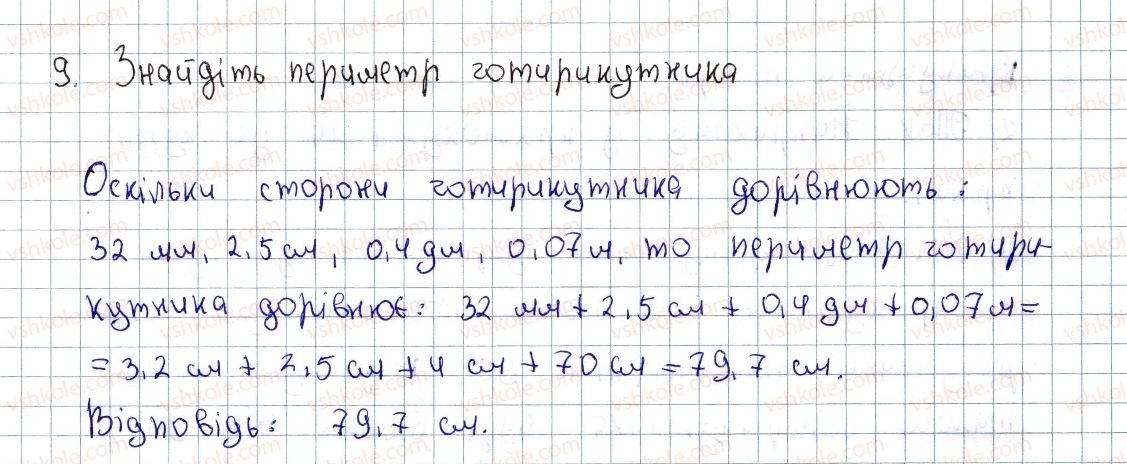 9. Знайдіть периметр чотирикутника
Оскільки сторони чотирикутника дорівнюють:
32 мм, 2,5 см, 0,4 дм, 0,07 м, то периметр чотири-
кутника дорівнює: 32 мм + 2,5 см + 0,4 дм + 0,07 м =
= 3,2 см + 2,5 см + 4 см + 70 см = 79,7 см.
Відповідь: 79,7 см.